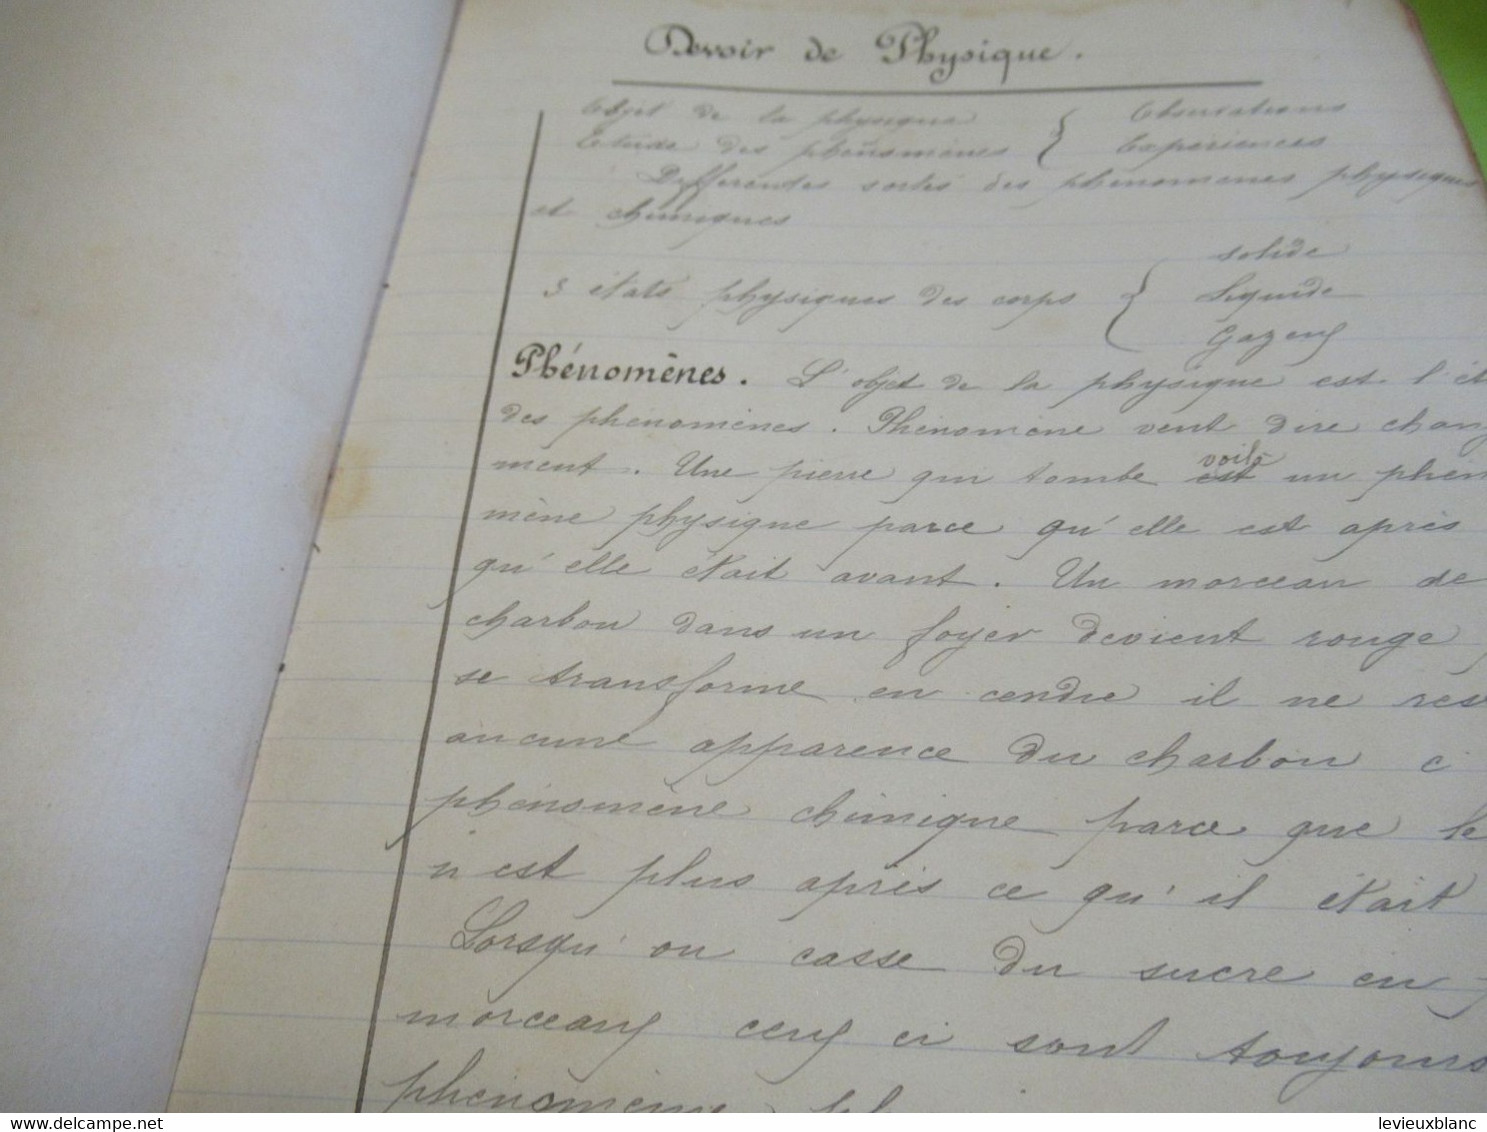 Devoir de Physique.
Objet de la physique { Observations
Etude des phénomènes { Expériences
Differentes sortes des phénomènes physiques
et chimiques
solide
3 états physiques des corps { Liquide
Gazeux
Phénomènes. L'objet de la physique est l'ét
des phénomènes. Phénomène veut dire chan
ment. Une pierre qui tombe est voilà un phéno
mène physique parce qu'elle est après
qu'elle était avant. Un morceau de
charbon dans un foyer devient rouge
se transforme en cendre il ne res
aucune apparence du charbon c
phénomène chimique parce que le
n'est plus après ce qu'il était
Lorsqu'on casse du sucre en
morceaux ceux ci sont toujours
phénomène
delcampe.net
levieuxblanc